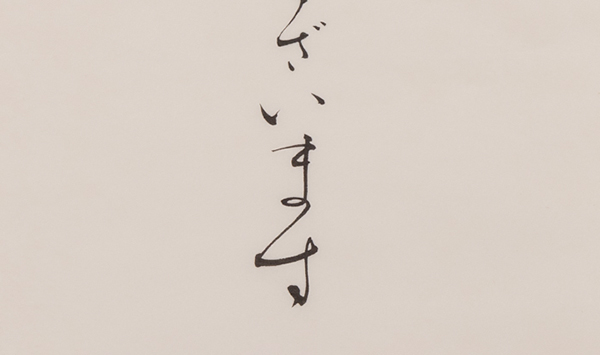 ざいます